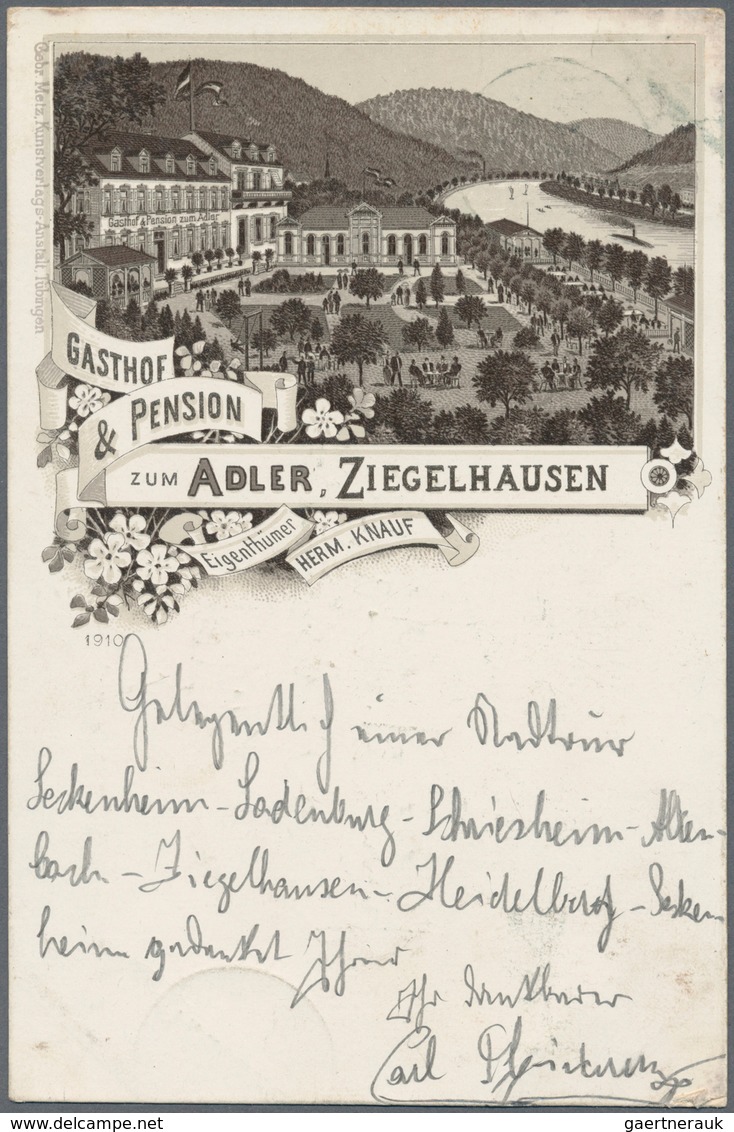 Gebr. Metz, Kunstverlags-Anstalt, Tübingen
Gasthof & Pension zum Adler
GASTHOF
& PENSION
ZUM ADLER, ZIEGELHAUSEN
Eigenthümer
HERM. KNAUF
1910
Gelegentlich einer Radtour
Seckenheim-Ladenburg-Schriesheim-Alten-
bach-Ziegelhausen-Heidelberg-Secken
heim gedenkt Ihrer
Ihr dankbarer
Carl
gaertnerauk